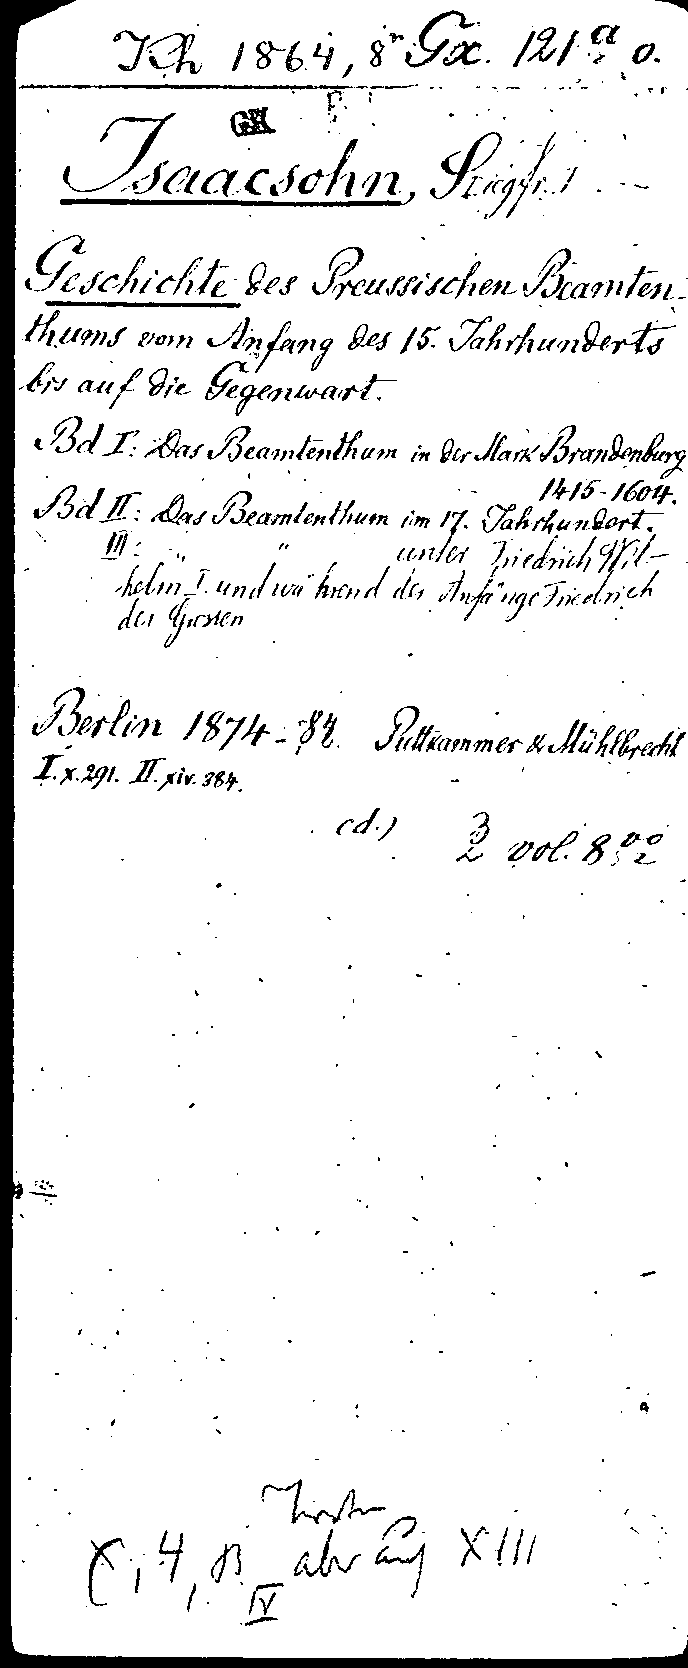 Kh 1864, 8º Gx. 121ª o.
GX
Isaacsohn, Siegfr.
Geschichte des Preussischen Beamten-
thums vom Anfang des 15. Jahrhunderts
bis auf die Gegenwart.
Bd I: Das Beamtenthum in der Mark Brandenburg
1415-1604.
Bd II: Das Beamtenthum im 17. Jahrhundert.
III: " " unter Friedrich Wil-
helm I. und während der Anfänge Friedrich
des Grossen
Berlin 1874-84. Puttkammer & Mühlbrecht
I. x. 291. II. xiv. 384.
cd.) 3 vol. 8vo
X, 4, B IV aber auf XIII